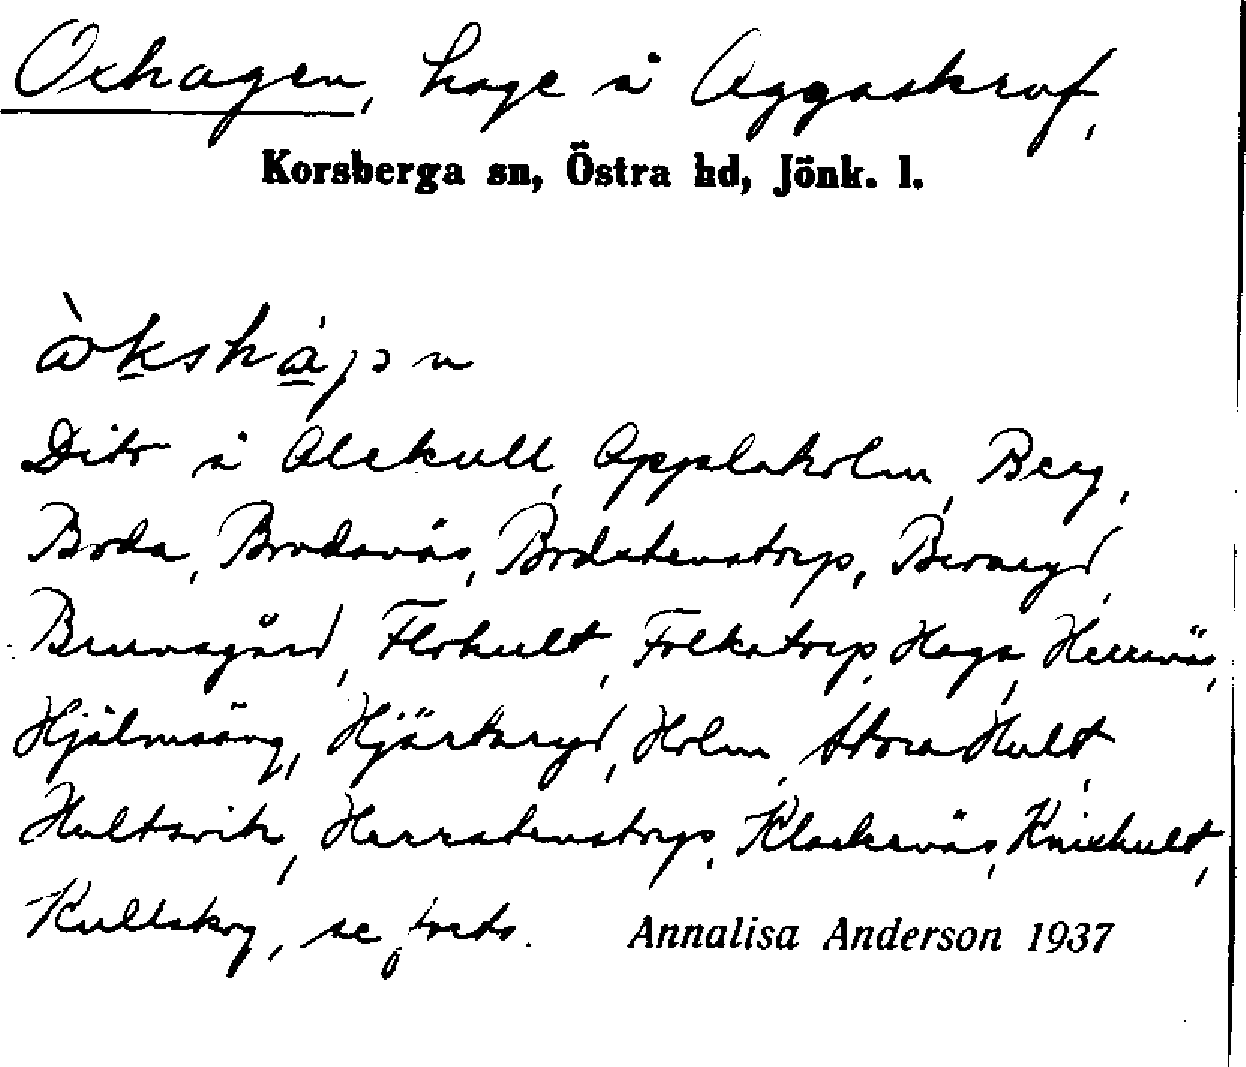 Oxhagen, hage å Aggaskruf,
Korsberga sn, Östra hd, Jönk. l.
Dito å Alekull, Applaholm, Berg,
Boda, Brodaväs, Brdstenstorp, Broaryd,
Brunsgård, Flohult, Folkstorp, Haga, Hemväs,
Hjälmsäng, Hjärtaryd, Holm, Stora Hult,
Hultsvik, Herrstenstorp, Klackeväs, Knixhult,
Kullskog, se forts. Annalisa Anderson 1937